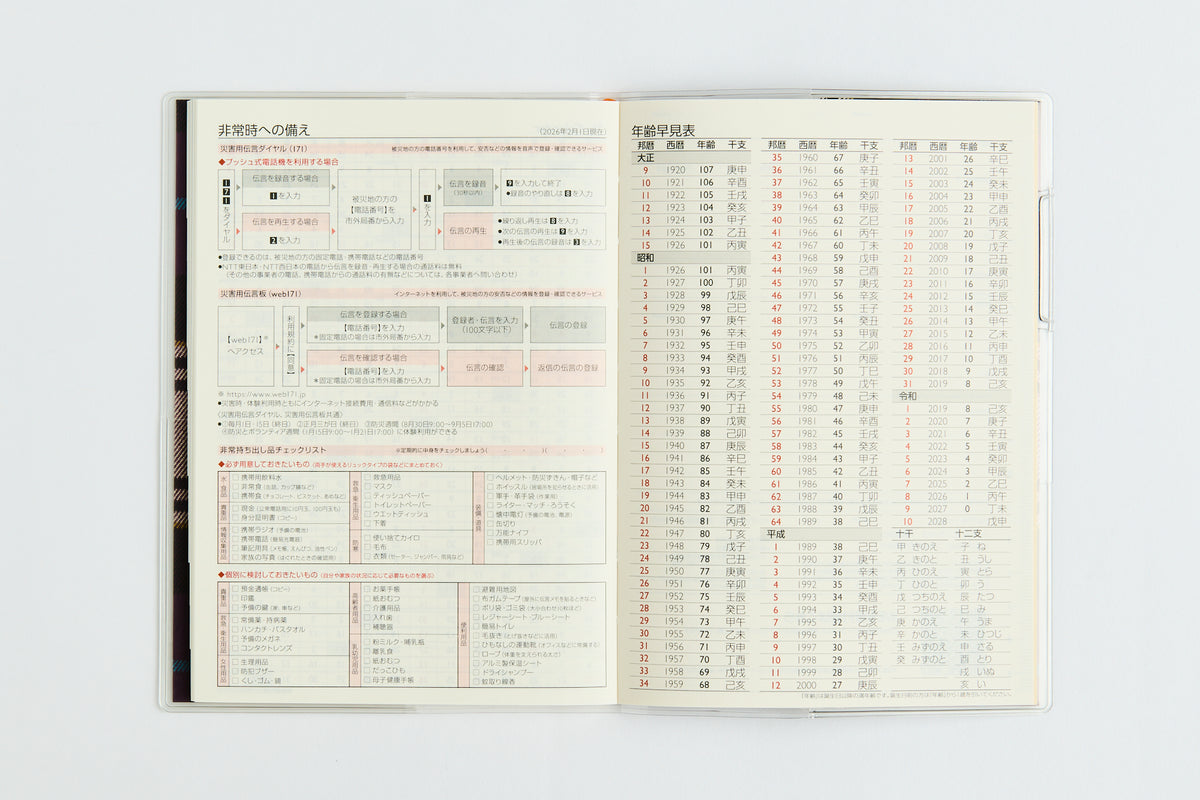 非常時への備え
(2026年2月1日現在)
災害用伝言ダイヤル (171)
被災地の方の電話番号を利用して、安否などの情報を音声で登録・確認できるサービス
◆プッシュ式電話機を利用する場合
171をダイヤル
伝言を録音する場合
1を入力
伝言を再生する場合
2を入力
被災地の方の
【電話番号】を
市外局番から入力
1を入力
伝言を録音
(30秒以内)
9を入力して終了
●録音のやり直しは8を入力
伝言の再生
●繰り返し再生は8を入力
●次の伝言の再生は9を入力
●再生後の伝言の録音は3を入力
●登録できるのは、被災地の方の固定電話・携帯電話などの電話番号
●NTT東日本・NTT西日本の電話から伝言を録音・再生する場合の通話料は無料
(その他の事業者の電話、携帯電話からの通話料の有無などについては、各事業者へ問い合わせ)
災害用伝言板 (web171)
インターネットを利用して、被災地の方の安否などの情報を登録・確認できるサービス
【web171】※
へアクセス
利用規約に【同意】
伝言を登録する場合
【電話番号】を入力
*固定電話の場合は市外局番から入力
登録者・伝言を入力
(100文字以下)
伝言の登録
伝言を確認する場合
【電話番号】を入力
*固定電話の場合は市外局番から入力
伝言の確認
返信の伝言の登録
※ https://www.web171.jp
●災害時・体験利用時ともにインターネット接続費用・通信料などがかかる
〈災害用伝言ダイヤル、災害用伝言板共通〉
●①毎月1日・15日 (終日) ②正月三が日 (終日) ③防災週間 (8月30日9:00~9月5日17:00)
④防災とボランティア週間 (1月15日9:00~1月21日17:00) に体験利用ができる
非常持ち出し品チェックリスト
※定期的に中身をチェックしましょう( ・ ・ )( ・ ・ )
◆必ず用意しておきたいもの (両手が使えるリュックタイプの袋などにまとめておく)
水・食品
□ 携帯用飲料水
□ 非常食 (缶詰、カップ麺など)
□ 携帯食 (チョコレート、ビスケット、あめなど)
貴重品
□ 現金 (公衆電話用に10円玉、100円玉も)
□ 身分証明書 (コピー)
情報収集用品
□ 携帯ラジオ (予備の電池)
□ 携帯電話 (簡易充電器)
□ 筆記用具 (メモ帳、えんぴつ、油性ペン)
□ 家族の写真 (はぐれたときの確認用)
救急・衛生用品
□ 救急用品
□ マスク
□ ティッシュペーパー
□ トイレットペーパー
□ ウエットティッシュ
□ 下着
防寒
□ 使い捨てカイロ
□ 毛布
□ 衣類 (セーター、ジャンパー、雨具など)
装備・道具
□ ヘルメット・防災ずきん・帽子など
□ ホイッスル (居場所を知らせるときに活用)
□ 軍手・革手袋 (作業用)
□ ライター・マッチ・ろうそく
□ 懐中電灯 (予備の電池、電球)
□ 缶切り
□ 万能ナイフ
□ 携帯用スリッパ
◆個別に検討しておきたいもの (自分や家族の状況に応じて必要なものを選ぶ)
貴重品
□ 預金通帳 (コピー)
□ 印鑑
□ 予備の鍵 (家、車など)
救急・衛生用品
□ 常備薬・持病薬
□ ハンカチ・バスタオル
□ 予備のメガネ
□ コンタクトレンズ
女性用品
□ 生理用品
□ 防犯ブザー
□ くし・ゴム・鏡
高齢者用品
□ お薬手帳
□ 紙おむつ
□ 介護用品
□ 入れ歯
□ 補聴器
乳幼児用品
□ 粉ミルク・哺乳瓶
□ 離乳食
□ 紙おむつ
□ だっこひも
□ 母子健康手帳
便利用品
□ 避難用地図
□ 布ガムテープ (屋外に伝言メモを貼るときなど)
□ ポリ袋・ゴミ袋 (大小合わせ10枚ほど)
□ レジャーシート・ブルーシート
□ 簡易トイレ
□ 毛抜き (とげ抜きなどに活用)
□ ひもなしの運動靴 (オフィスなどに常備する)
□ ロープ (体重を支えられる太さ)
□ アルミ製保温シート
□ ドライシャンプー
□ 蚊取り線香
年齢早見表
邦暦 西暦 年齢 干支
大正
9 1920 107 庚申
10 1921 106 辛酉
11 1922 105 壬戌
12 1923 104 癸亥
13 1924 103 甲子
14 1925 102 乙丑
15 1926 101 丙寅
昭和
1 1926 101 丙寅
2 1927 100 丁卯
3 1928 99 戊辰
4 1929 98 己巳
5 1930 97 庚午
6 1931 96 辛未
7 1932 95 壬申
8 1933 94 癸酉
9 1934 93 甲戌
10 1935 92 乙亥
11 1936 91 丙子
12 1937 90 丁丑
13 1938 89 戊寅
14 1939 88 己卯
15 1940 87 庚辰
16 1941 86 辛巳
17 1942 85 壬午
18 1943 84 癸未
19 1944 83 甲申
20 1945 82 乙酉
21 1946 81 丙戌
22 1947 80 丁亥
23 1948 79 戊子
24 1949 78 己丑
25 1950 77 庚寅
26 1951 76 辛卯
27 1952 75 壬辰
28 1953 74 癸巳
29 1954 73 甲午
30 1955 72 乙未
31 1956 71 丙申
32 1957 70 丁酉
33 1958 69 戊戌
34 1959 68 己亥
邦暦 西暦 年齢 干支
35 1960 67 庚子
36 1961 66 辛丑
37 1962 65 壬寅
38 1963 64 癸卯
39 1964 63 甲辰
40 1965 62 乙巳
41 1966 61 丙午
42 1967 60 丁未
43 1968 59 戊申
44 1969 58 己酉
45 1970 57 庚戌
46 1971 56 辛亥
47 1972 55 壬子
48 1973 54 癸丑
49 1974 53 甲寅
50 1975 52 乙卯
51 1976 51 丙辰
52 1977 50 丁巳
53 1978 49 戊午
54 1979 48 己未
55 1980 47 庚申
56 1981 46 辛酉
57 1982 45 壬戌
58 1983 44 癸亥
59 1984 43 甲子
60 1985 42 乙丑
61 1986 41 丙寅
62 1987 40 丁卯
63 1988 39 戊辰
64 1989 38 己巳
平成
1 1989 38 己巳
2 1990 37 庚午
3 1991 36 辛未
4 1992 35 壬申
5 1993 34 癸酉
6 1994 33 甲戌
7 1995 32 乙亥
8 1996 31 丙子
9 1997 30 丁丑
10 1998 29 戊寅
11 1999 28 己卯
12 2000 27 庚辰
邦暦 西暦 年齢 干支
13 2001 26 辛巳
14 2002 25 壬午
15 2003 24 癸未
16 2004 23 甲申
17 2005 22 乙酉
18 2006 21 丙戌
19 2007 20 丁亥
20 2008 19 戊子
21 2009 18 己丑
22 2010 17 庚寅
23 2011 16 辛卯
24 2012 15 壬辰
25 2013 14 癸巳
26 2014 13 甲午
27 2015 12 乙未
28 2016 11 丙申
29 2017 10 丁酉
30 2018 9 戊戌
31 2019 8 己亥
令和
1 2019 8 己亥
2 2020 7 庚子
3 2021 6 辛丑
4 2022 5 壬寅
5 2023 4 癸卯
6 2024 3 甲辰
7 2025 2 乙巳
8 2026 1 丙午
9 2027 0 丁未
10 2028 戊申
十干 十二支
甲 きのえ 子 ね
乙 きのと 丑 うし
丙 ひのえ 寅 とら
丁 ひのと 卯 う
戊 つちのえ 辰 たつ
己 つちのと 巳 み
庚 かのえ 午 うま
辛 かのと 未 ひつじ
壬 みずのえ 申 さる
癸 みずのと 酉 とり
戌 いぬ
亥 い
「年齢」は誕生日以降の満年齢です。誕生日前の方は「年齢」から1歳を引いてください。